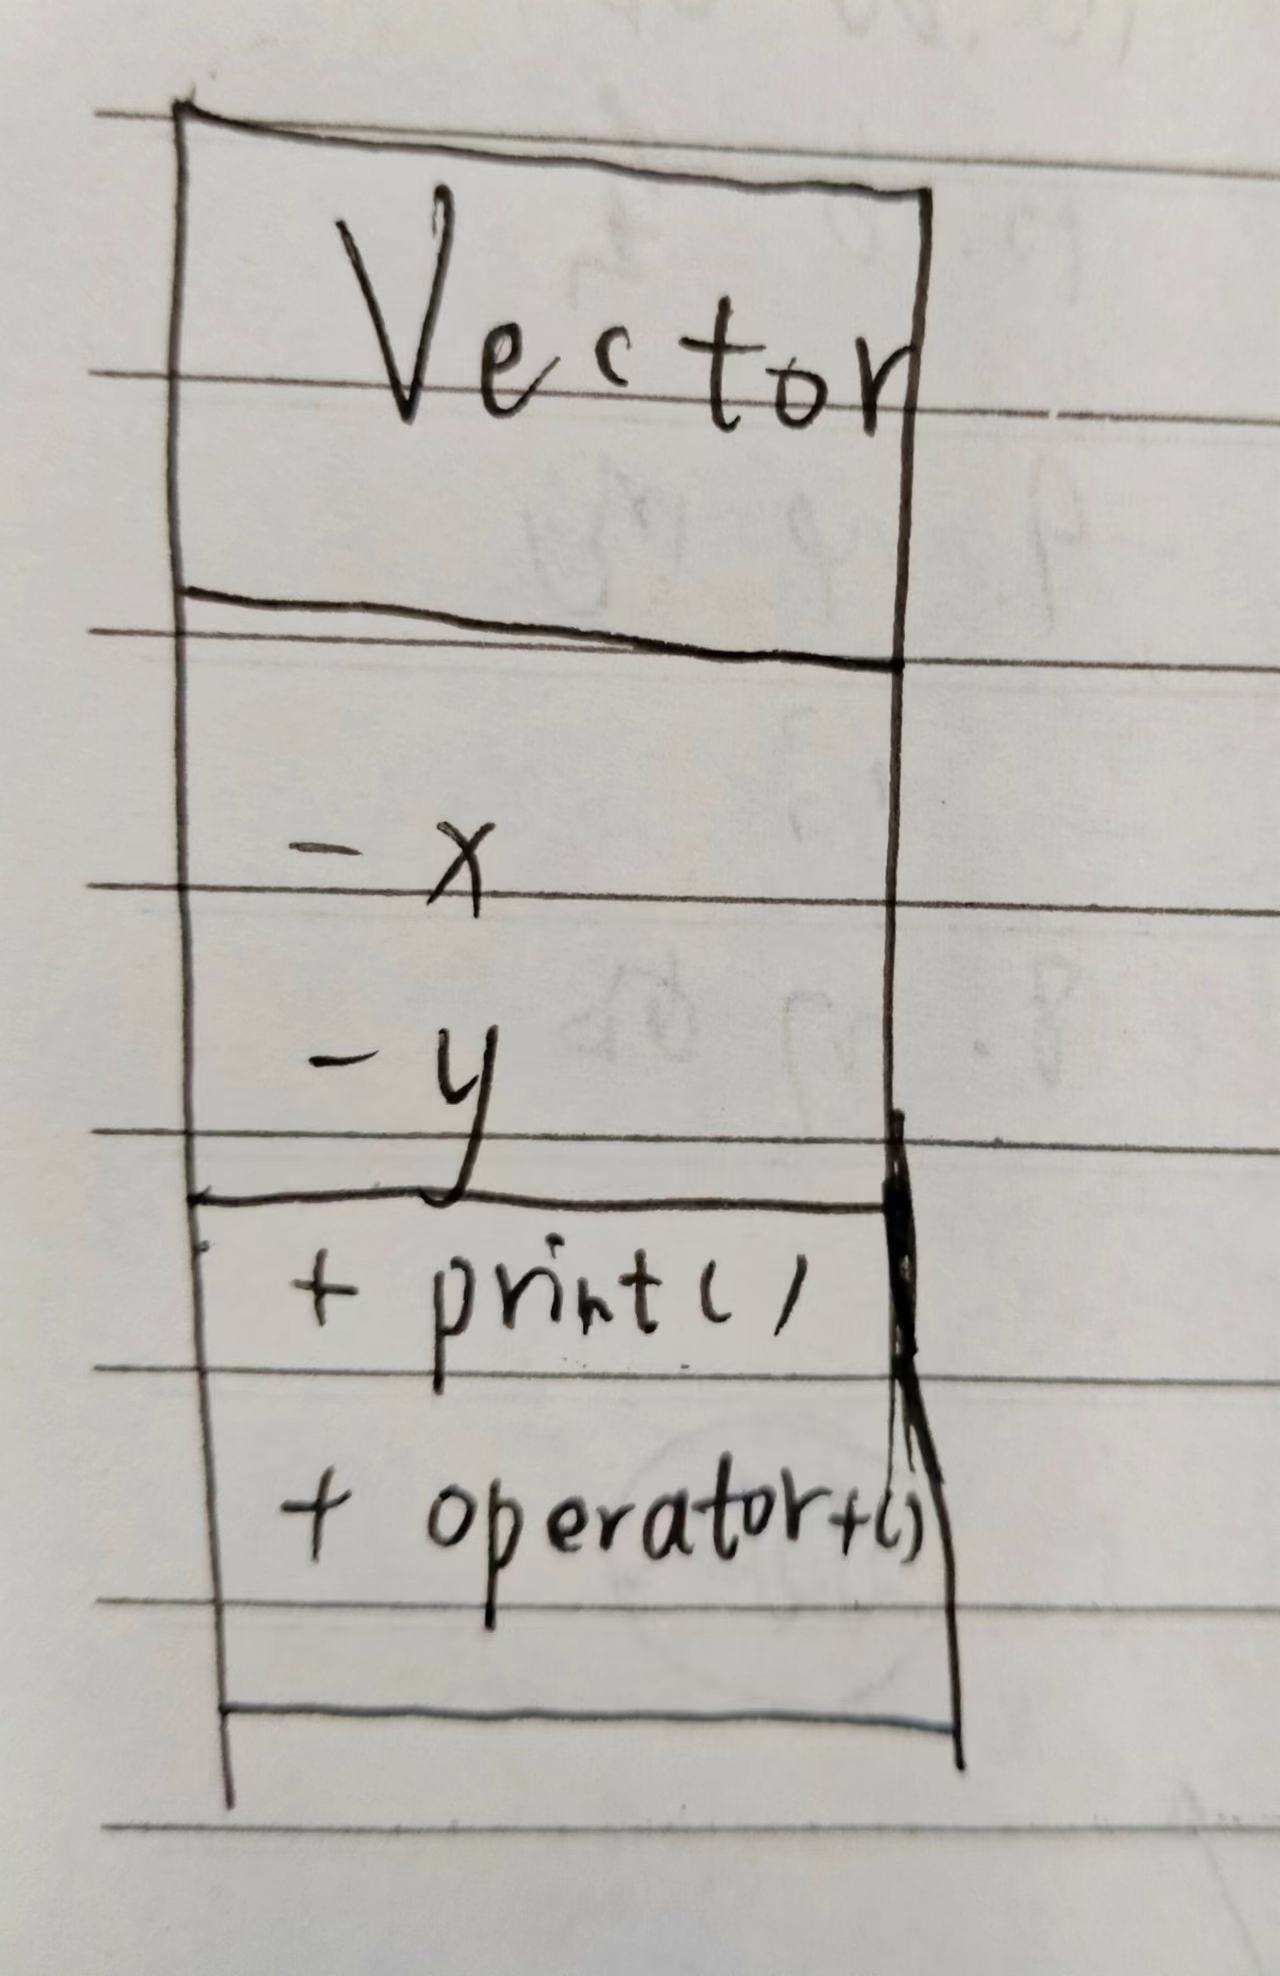 Vector
- x
- y
+ print()
+ operator+()